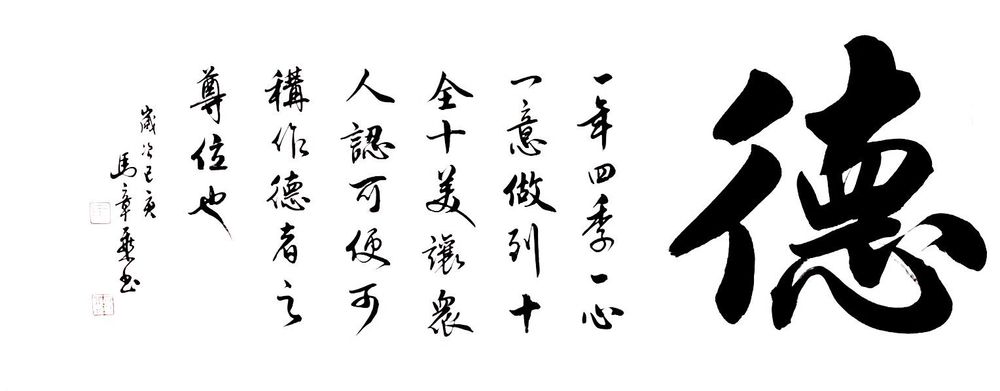 德
一年四季一心
一意做到十
全十美讓眾
人認可便可
稱作德者之
尊位也
歲次己庚
馬章乘书